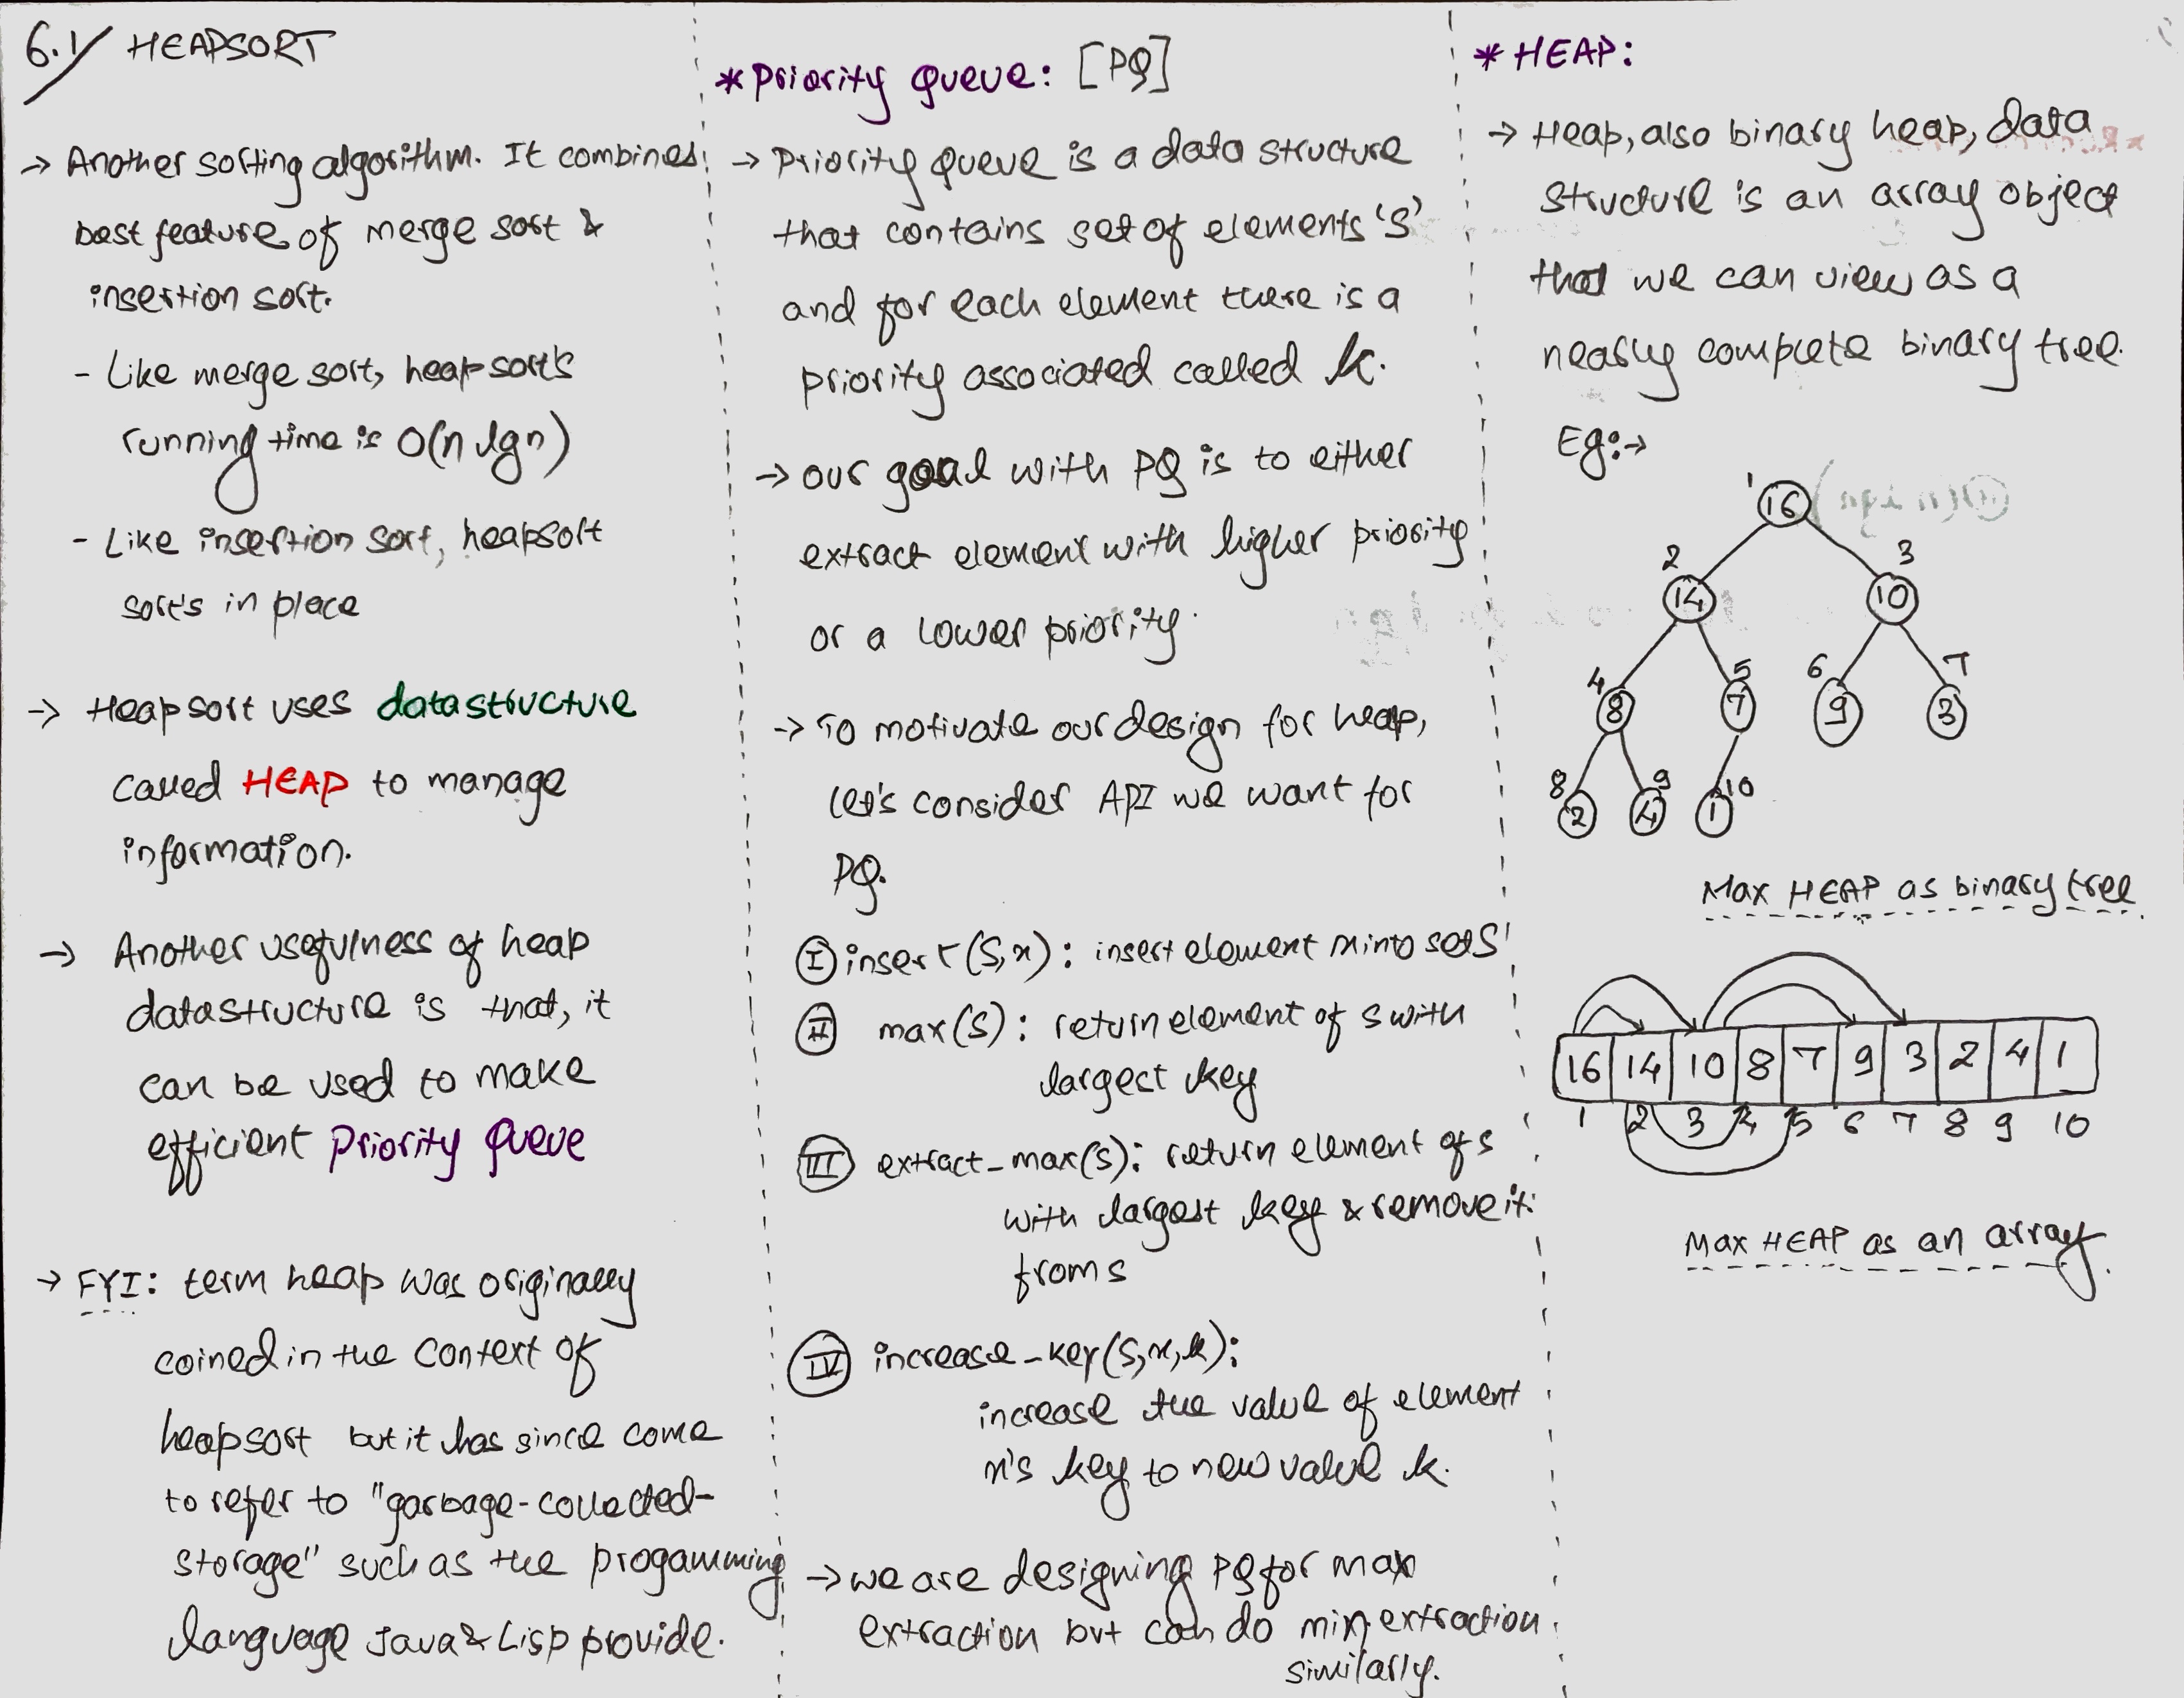 6.1/ HEAPSORT
→ Another sorting algorithm. It combines
best feature of merge sort &
insertion sort.
- Like merge sort, heapsort's
running time is O(n lgn)
- Like insertion sort, heapsort
sort's in place
→ Heapsort uses datastructure
called HEAP to manage
information.
→ Another usefulness of heap
datastructure is that, it
can be used to make
efficient Priority Queue
→ FYI: term heap was originally
coined in the context of
heapsort but it has since come
to refer to "garbage-collected-
storage" such as the progamming
language Java & Lisp provide.
* Priority Queue: [PQ]
→ Priority Queue is a data structure
that contains set of elements 'S'
and for each element there is a
priority associated called k.
→ our goal with PQ is to either
extract element with higher priority
or a lower priority.
→ To motivate our design for heap,
let's consider API we want for
PQ.
I insert(S,x): insert element x into set S
II max(S): return element of S with
largest key
III extract_max(S): return element of S
with largest key & remove it
from S
IV increase_key(S,x,k):
increase the value of element
x's key to new value k.
→ we are designing PQ for max
extraction but can do min extraction
similarly.
* HEAP:
→ Heap, also binary heap, data
structure is an array object
that we can view as a
nearly complete binary tree.
Eg:→
1
16
2 3
14 10
4 5 6 7
8 7 9 3
8 9 10
2 4 1
Max HEAP as binary tree
16 14 10 8 7 9 3 2 4 1
1 2 3 4 5 6 7 8 9 10
Max HEAP as an array.